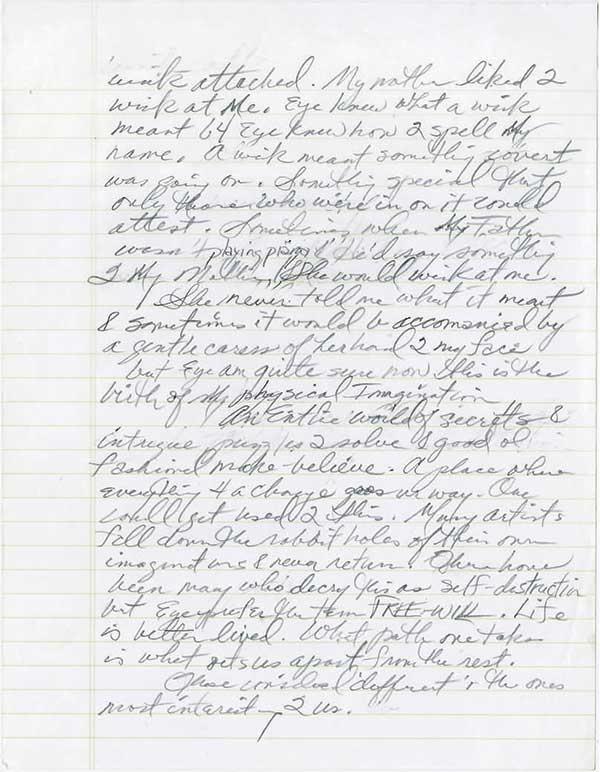 wink attached. My mother liked 2
wink at Me. Eye knew what a wink
meant b4 Eye knew how 2 spell My
name. A wink meant something covert
was going on. Something special that
only those who were in on it could
attest. Sometimes when My Father
wasn't playing piano he'd say something
2 My Mother & She would wink at me.
She never told me what it meant
& sometimes it would be accompanied by
a gentle caress of her hand 2 my face
but Eye am quite sure now this is the
birth of My physical Imagination
An Entire world of secrets &
intrigue puzzles 2 solve & good ol'
fashioned make-believe. A place where
everything 4 a change goes ur way. One
could get used 2 this. Many artists
fall down the rabbit holes of their own
imaginations & never return. There have
been many who decry this as self-destruction
but Eye prefer the term FREE-WILL. Life
is better lived. What path one takes
is what sets us apart from the rest.
Those considered "different" r the ones
most interesting 2 us.